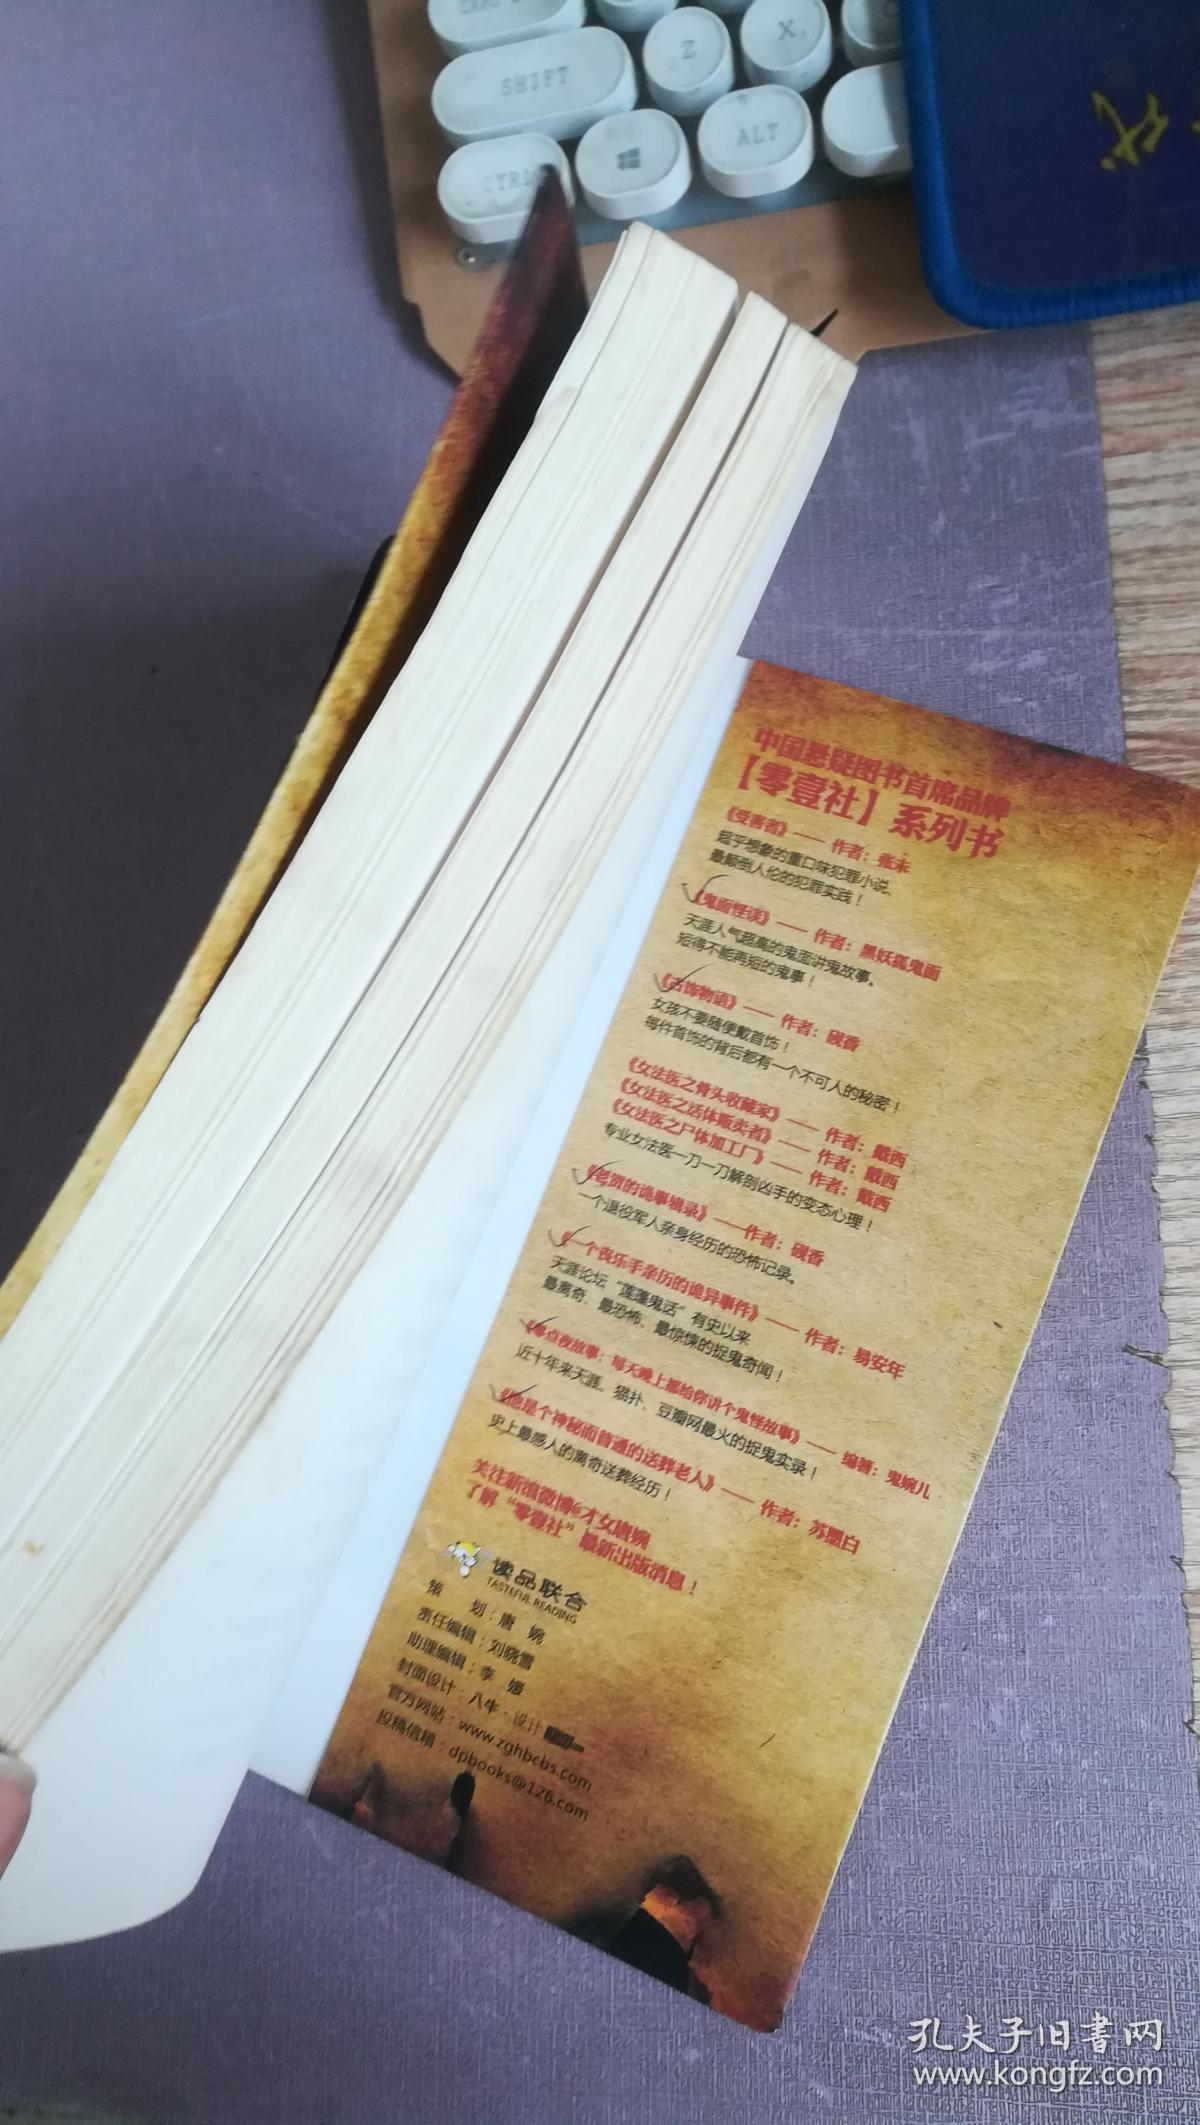 SHIFT
Z
X
CTRL
ALT
中国悬疑图书首席品牌
【零壹社】系列书
《受害者》—— 作者：张未
超乎想象的重口味犯罪小说、
最颠倒人伦的犯罪实践！
《鬼面怪谈》—— 作者：黑妖狐鬼面
天涯人气超高的鬼面讲鬼故事。
短得不能再短的鬼事！
《古饰物语》—— 作者：砚香
女孩不要随便戴首饰！
每件首饰的背后都有一个不可人的秘密！
《女法医之骨头收藏家》—— 作者：戴西
《女法医之活体贩卖者》—— 作者：戴西
《女法医之尸体加工厂》—— 作者：戴西
专业女法医一刀一刀解剖凶手的变态心理！
《老贺的诡事辑录》——作者：砚香
一个退役军人亲身经历的恐怖记录。
《一个丧乐手亲历的诡异事件》—— 作者：易安年
天涯论坛“莲蓬鬼话”有史以来
最离奇、最恐怖、最惊悚的捉鬼奇闻！
《零点夜故事：每天晚上都给你讲个鬼怪故事》—— 编著：鬼婉儿
近十年来天涯、猫扑、豆瓣网最火的捉鬼实录！
《他是个神秘而普通的送葬老人》—— 作者：苏墨白
史上最感人的离奇送葬经历！
关注新浪微博@才女唐婉
了解“零壹社”最新出版消息！
读品联合
TASTEFUL READING
策 划：唐 婉
责任编辑：刘晓雪
助理编辑：李 媛
封面设计：八牛·设计
官方网站：www.zghbcbs.com
投稿信箱：dpbooks@126.com
孔夫子旧書网
www.kongfz.com